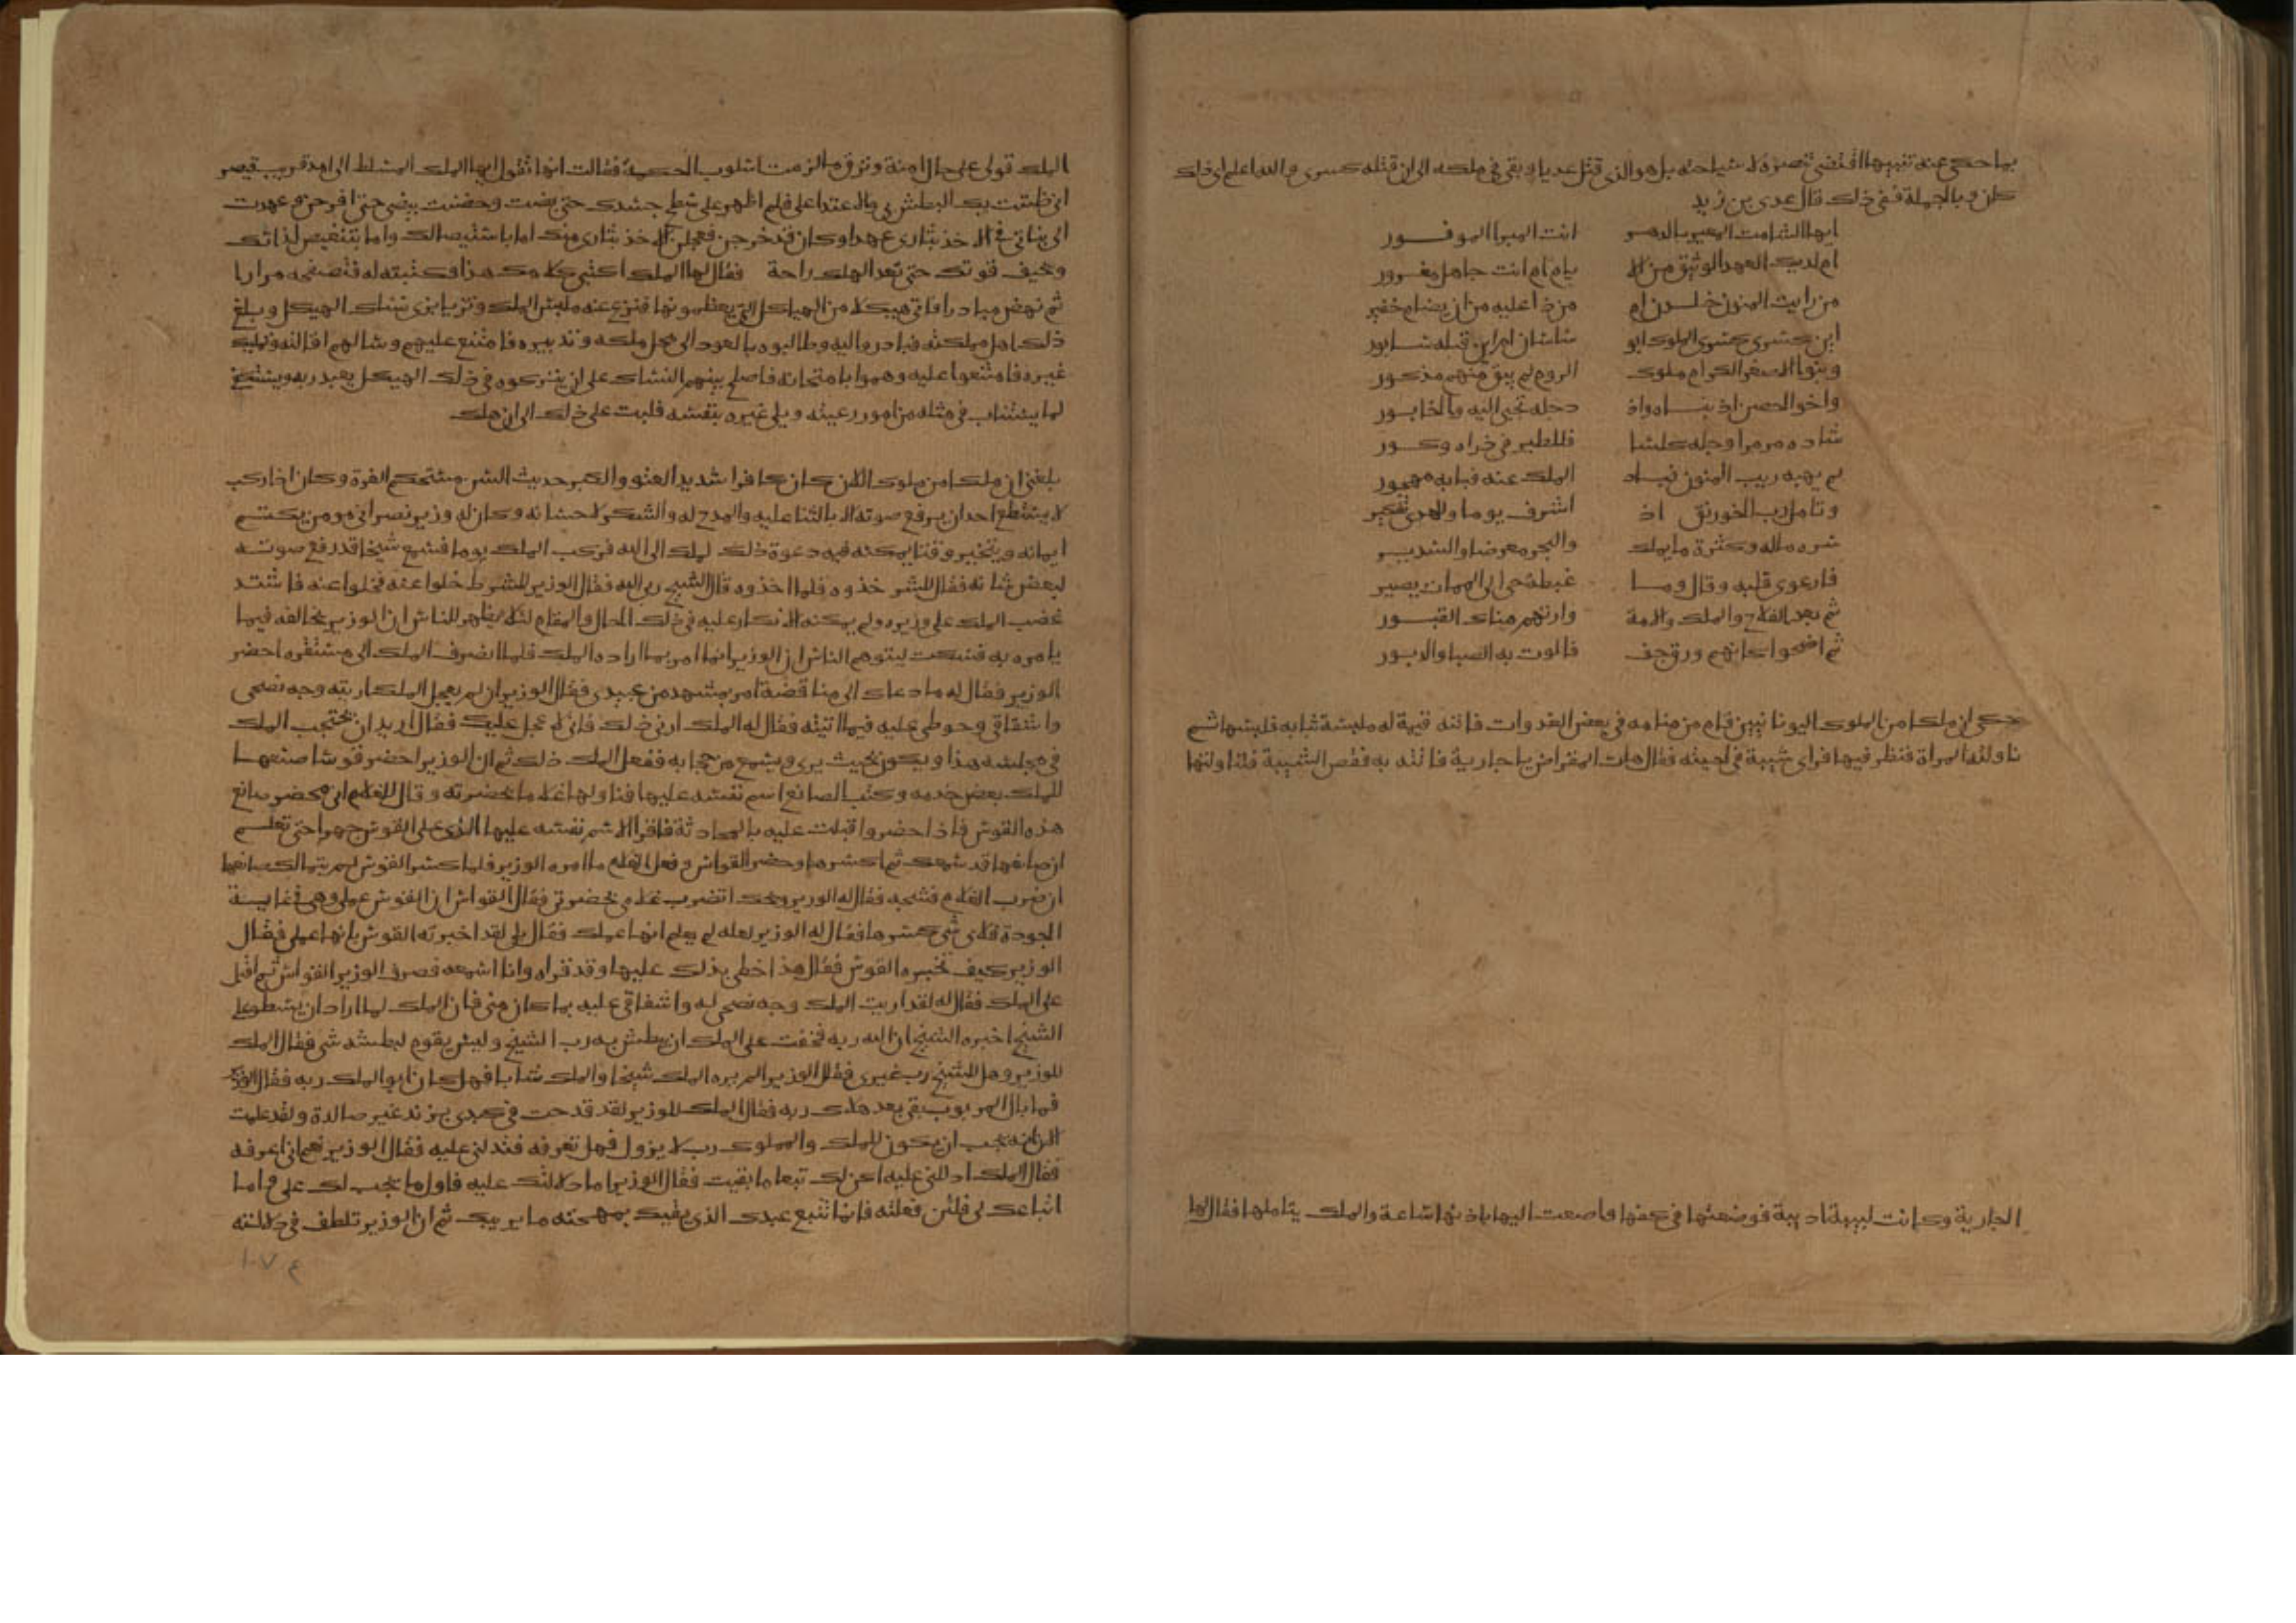 بما حكى عنه تنبيها اقتضى تنصره ولا سياحته بل هو الذي قتل عديا وبقي في ملكه الى ان قتله كسرى والله اعلم اي ذلك
كان وبالجملة ففي ذلك قال عدي بن زيد
ايها الشامت المعير بالدهر انت المبرا الموفور
ام لديك العهد الوثيق من الا يام ام انت جاهل مغرور
من رايت المنون خلدن ام من ذا عليه من ان يضام خفير
اين كسرى كسرى الملوك ابو ساسان ام اين قبله سابور
وبنوا الاصفر الكرام ملوك الروم لم يبق منهم مذكور
واخو الحصن اذ بناه واذ دجله تجبى اليه والخابور
شاده مرمرا وجلله كلسا فللطير في ذراه وكور
لم يهبه ريب المنون فباد الملك عنه فبابه مهجور
وتامل رب الخورنق اذ اشرف يوما وللهدى تفكير
سره ماله وكثرة ما يملك والبحر معرضا والسدير
فارعوى قلبه وقال وما غبطة حي الى الممات يصير
ثم بعد الفلاح والملك والامة وارتهم هناك القبور
ثم اضحوا كانهم ورق جف فالوت به الصبا والدبور
حكي ان ملكا من الملوك اليونانيين قام من منامه في بعض الغدوات فاتته قيمة له ملبسة ثيابه فلبسها ثم
ناولته المراة فنظر فيها فراى شيبة في لحيته فقال هات المقراض يا جارية فاتته به فقص الشيبة فتناولتها
الجارية وكانت لبيبة اديبة فوضعتها في كفها واصغت اليها باذنها ساعة والملك يتاملها فقال لها
الملك قولي على حال امنة ونزق ما لزمت اسلوب الحكمة فقالت انها تقول ايها الملك المسلط الى امد قريب قيصر
اني ظننت بك البطش بي والاعتدا علي فلم اظهر على سطح جسدك حتى بضت وحضنت بيضي حتى افرخن وعهدت
الى بناتي في الاخذ بثاري عهدا وكان قد خرجن فعجلن الاخذ بثاري منك اما باستيصالك واما بتنغيص لذاتك
وتحيف قوتك حتى تعد الهلك راحة فقال لها الملك اكتبي كلامك هذا فكتبته له فتصفحه مرارا
ثم نهض مبادرا فاتى هيكلا من الهياكل التي يعظمونها فنزع عنه ملبس الملك وتزيا بزي نساك الهيكل وبلغ
ذلك اهل مملكته فبادروا اليه وطالبوه بالعود الى محل ملكه وتدبيره فامتنع عليهم وسالهم اقالته وتمليك
غيره فامتنعوا عليه وهموا بامتحانه فاصلح بينهم النساك على ان يتركوه في ذلك الهيكل يعبد ربه ويستنيب
لما يستناب في مثله من امور رعيته ويلي غيره بنفسه فلبث على ذلك الى ان هلك
بلغني ان ملكا من ملوك اللان كان كافرا شديد العتو والكبر حديث السن مستحكم الغرة وكان اذا ركب
لا يستطع احد ان يرفع صوته الا بالثنا عليه والمدح له والشكر لاحسانه وكان له وزير نصراني مومن يكتم
ايمانه ويتخير وقتا يمكنه فيه دعوة ذلك الملك الى الله فركب الملك يوما فسمع شيخا قد رفع صوته
لبعض شانه فقال للشر خذوه فلما اخذوه قال الشيخ ربي الله فقال الوزير للشرط خلوا عنه فخلوا عنه فاشتد
غضب الملك على وزيره ولم يمكنه الانكار عليه في ذلك الحال والمقام لئلا يظهر للناس ان الوزير يخالفه فيما
يامره به فسكت ليتوهم الناس ان الوزير انما امر بما اراده الملك فلما انصرف الملك الى مستقره احضر
الوزير فقال له ما دعاك الى مناقضة امر بمشهد من عبيدي فقال الوزير ان لم يعجل الملك اريته وجه نصحي
واشفاقي وحوطي عليه فيما اتيته فقال له الملك ارني ذلك فاني لا عجل عليك فقال اريد ان يحتجب الملك
في مجلسه هذا ويكون بحيث يرى ويسمع من حجابه ففعل الملك ذلك ثم ان الوزير احضر قوسا صنعها
للملك بعض خدمه وكتب الصانع اسم نفسه عليها فناولها غلاما بحضرته وقال للغلام اني محضر صانع
هذه القوس فاذا حضر واقبلت عليه بالمحادثة فاقرا اسم نفسه عليها الذي على القوس جهرا حتى تعلم
ان صانعها قد سمعك ثم اكسرها وحضر القواس وفعل الغلام ما امره الوزير فلما كسر القوس لم يتمالك صانعها
ان ضرب الغلام فشجه فقال له الوزير ويحك اتضرب غلامي بحضرتي فقال القواس ان القوس عملي وهي في غاية
الجودة فلاي شي كسرها فقال له الوزير لعله لم يعلم انها عملك فقال بلى لقد اخبرته القوس بانها عملي فقال
الوزير كيف تخبره القوس فقال هذا خطي بذلك عليها وقد قراه وانا اسمعه فصرف الوزير القواس ثم اقبل
على الملك فقال له لقد اريت الملك وجه نصحي له واشفاقي عليه بما كان مني فان الملك لما اراد ان يسطو على
الشيخ اخبره الشيخ ان الله ربه فخفت على الملك ان يبطش به رب الشيخ وليس يقوم لبطشه شي فقال الملك
للوزير وهل للشيخ رب غيري فقال الوزير الم يره الملك شيخا والملك شابا فهل كان ابو الملك ربه فقال الوزير
فما بال المربوب بقي بعد هلاك ربه فقال الملك للوزير لقد قدحت في كبدي بزند غير صالدة ولقد علمت
الان انه يجب ان يكون للملك والمملوك رب لا يزول فهل تعرفه فتدلني عليه فقال الوزير نعم اني اعرفه
فقال الملك ادللني عليه اكن لك تبعا ما بقيت فقال الوزير اما دلالتك عليه فاول ما يجب لك علي واما
اتباعك لي فلئن فعلته فانما تتبع عبدك الذي يقيك بمهجته ما يريبك ثم ان الوزير تلطف في دلالته